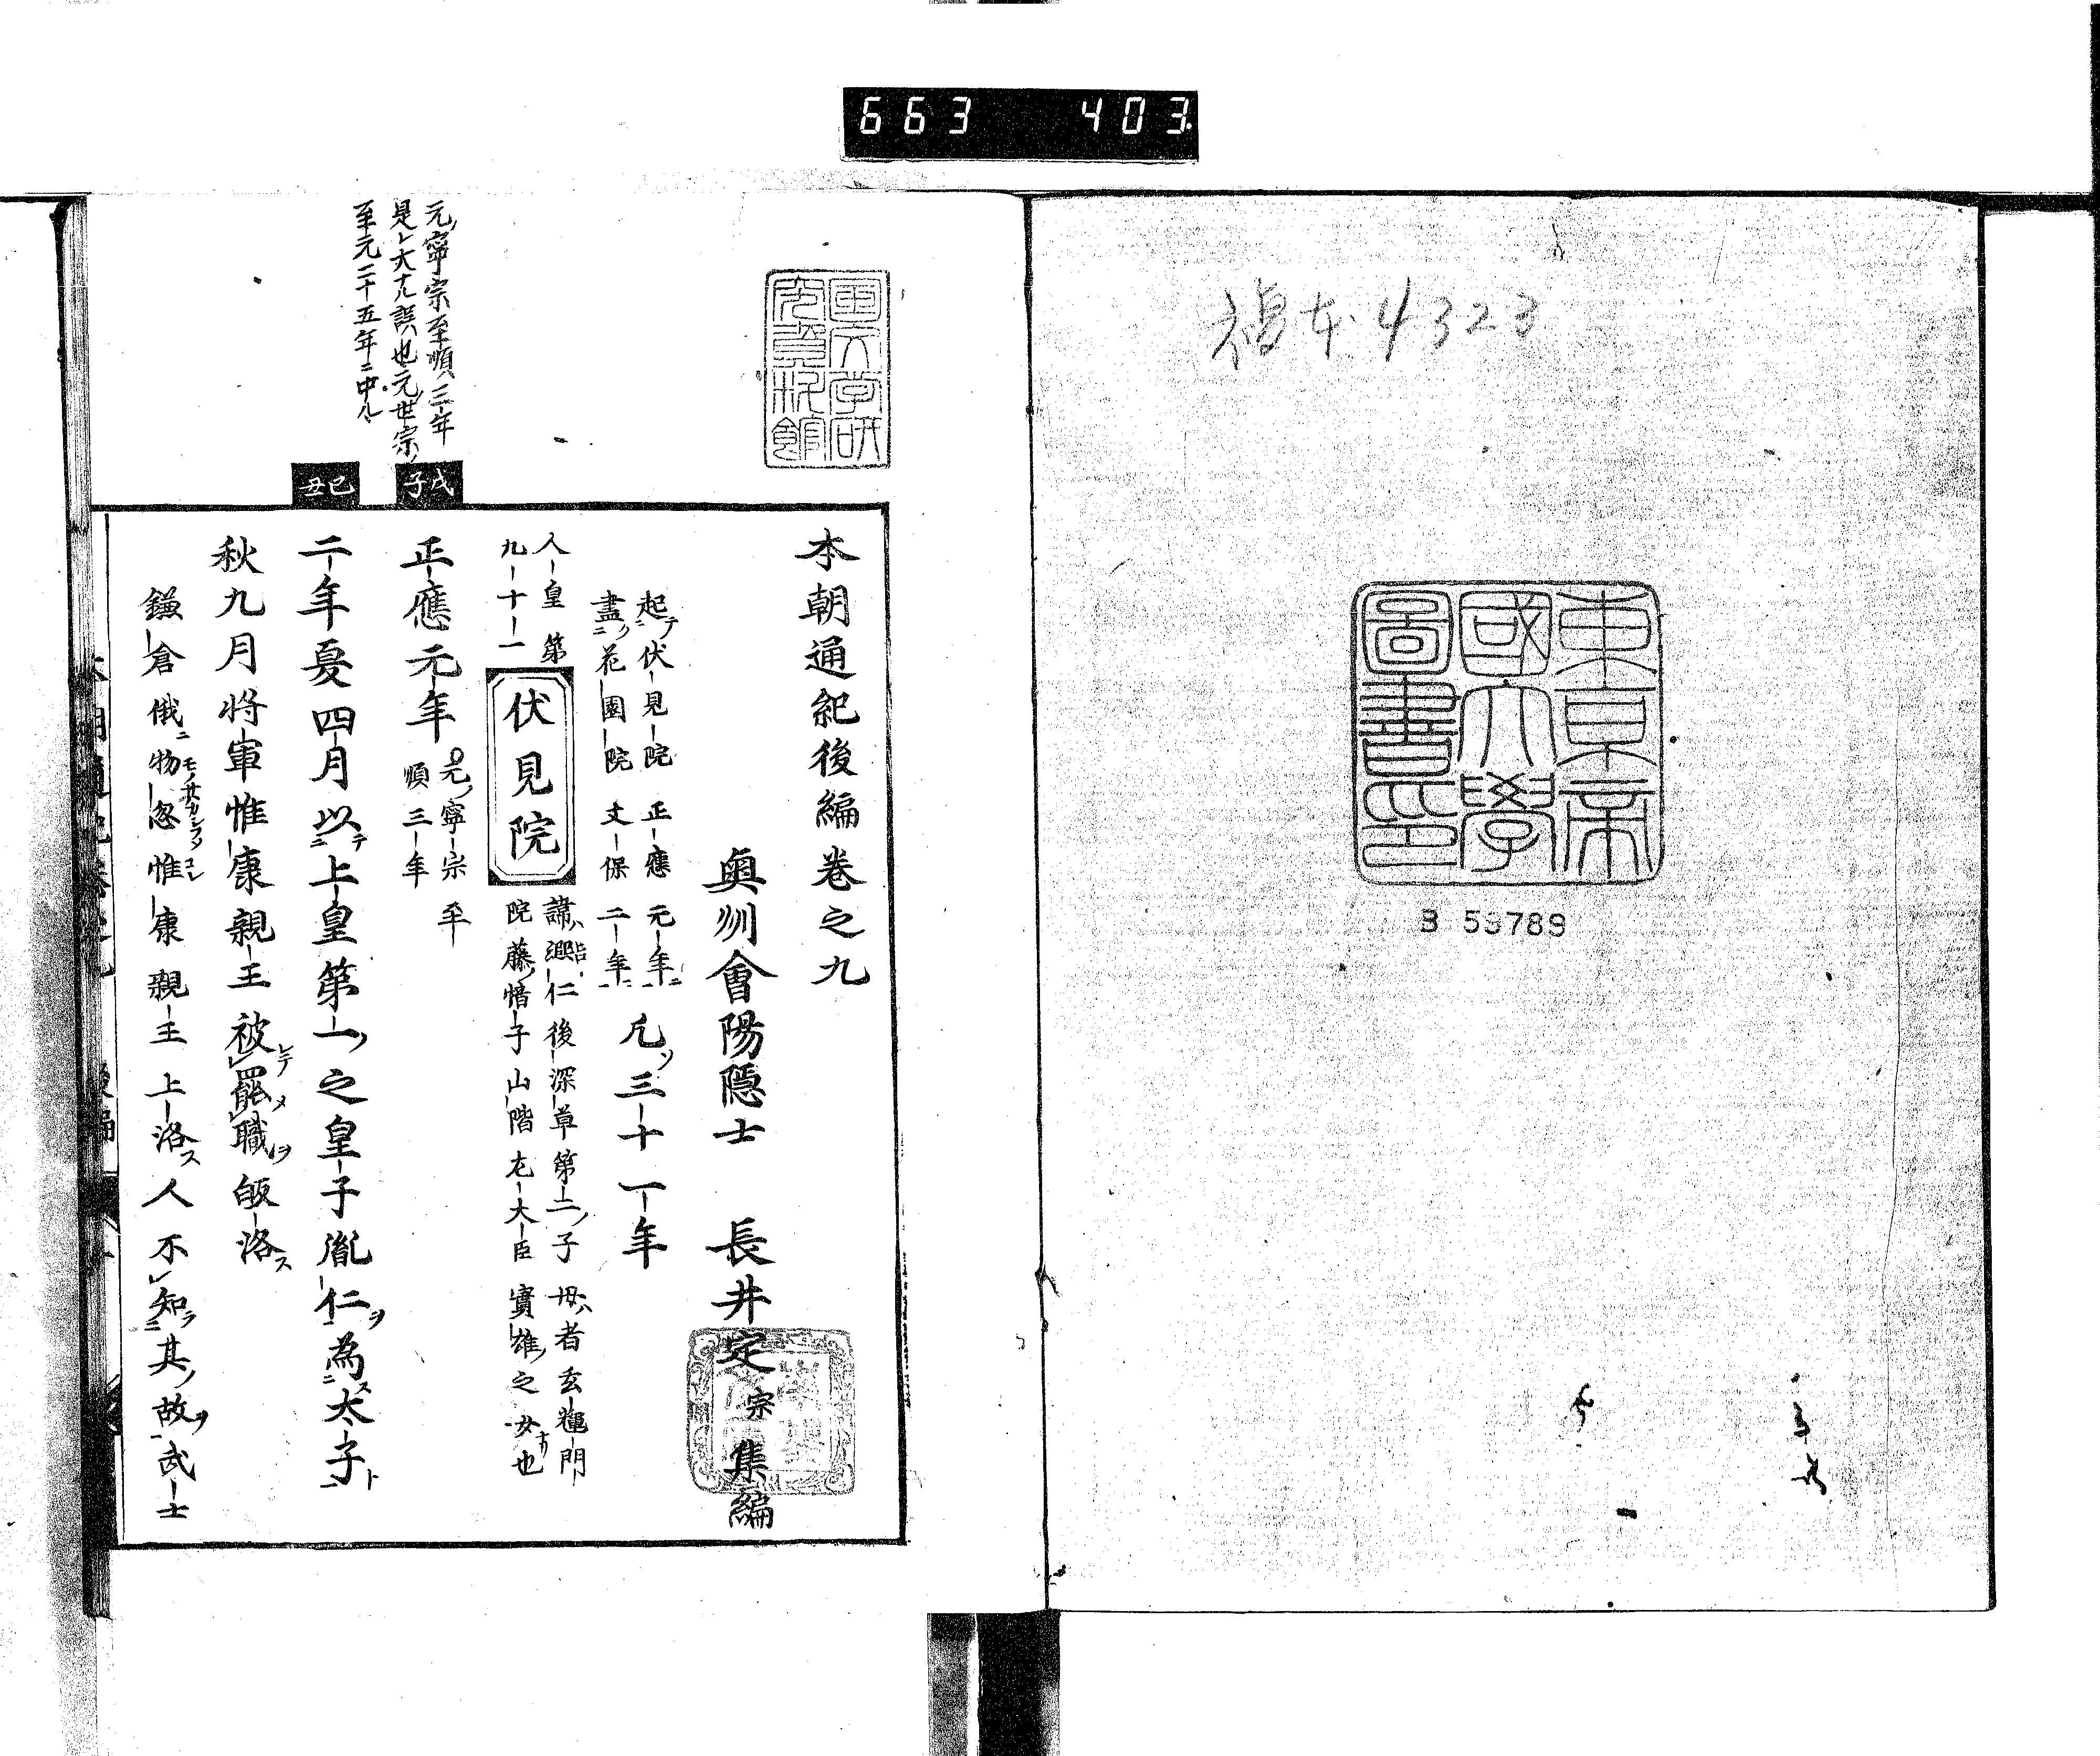 663 403
禝本4323
東京帝
國大學
圖書印
B 53789
國文学研
究資料館
元ノ寧宗至順ハ三年
是レ大ナル誤ハ也元ノ世宗ノ
至元二十五年ニ中ル
戊子
己丑
本朝通紀後編卷之九
奥州會陽隱士 長井定宗集編
起テノ伏見院正應元年ニ
盡ノ花園院文保二年ニ
凡ソ三十一年
人皇第
九十一
伏見院
諱ハ凞仁後深草第二ノ子母ハ者玄輝門
院藤ノ愔子山階左大臣實雄ノ之女ナリ也
正應元年
元ノ寧宗至
順三年
二年夏四月以テ上皇第一ノ之皇子胤仁ヲ為ス太子ト
秋九月將軍惟康親王被レテ罷メ職ヲ皈洛ス
鎌倉俄ニ物忩惟康親王上洛ス人不知ラ其ノ故ヲ武士